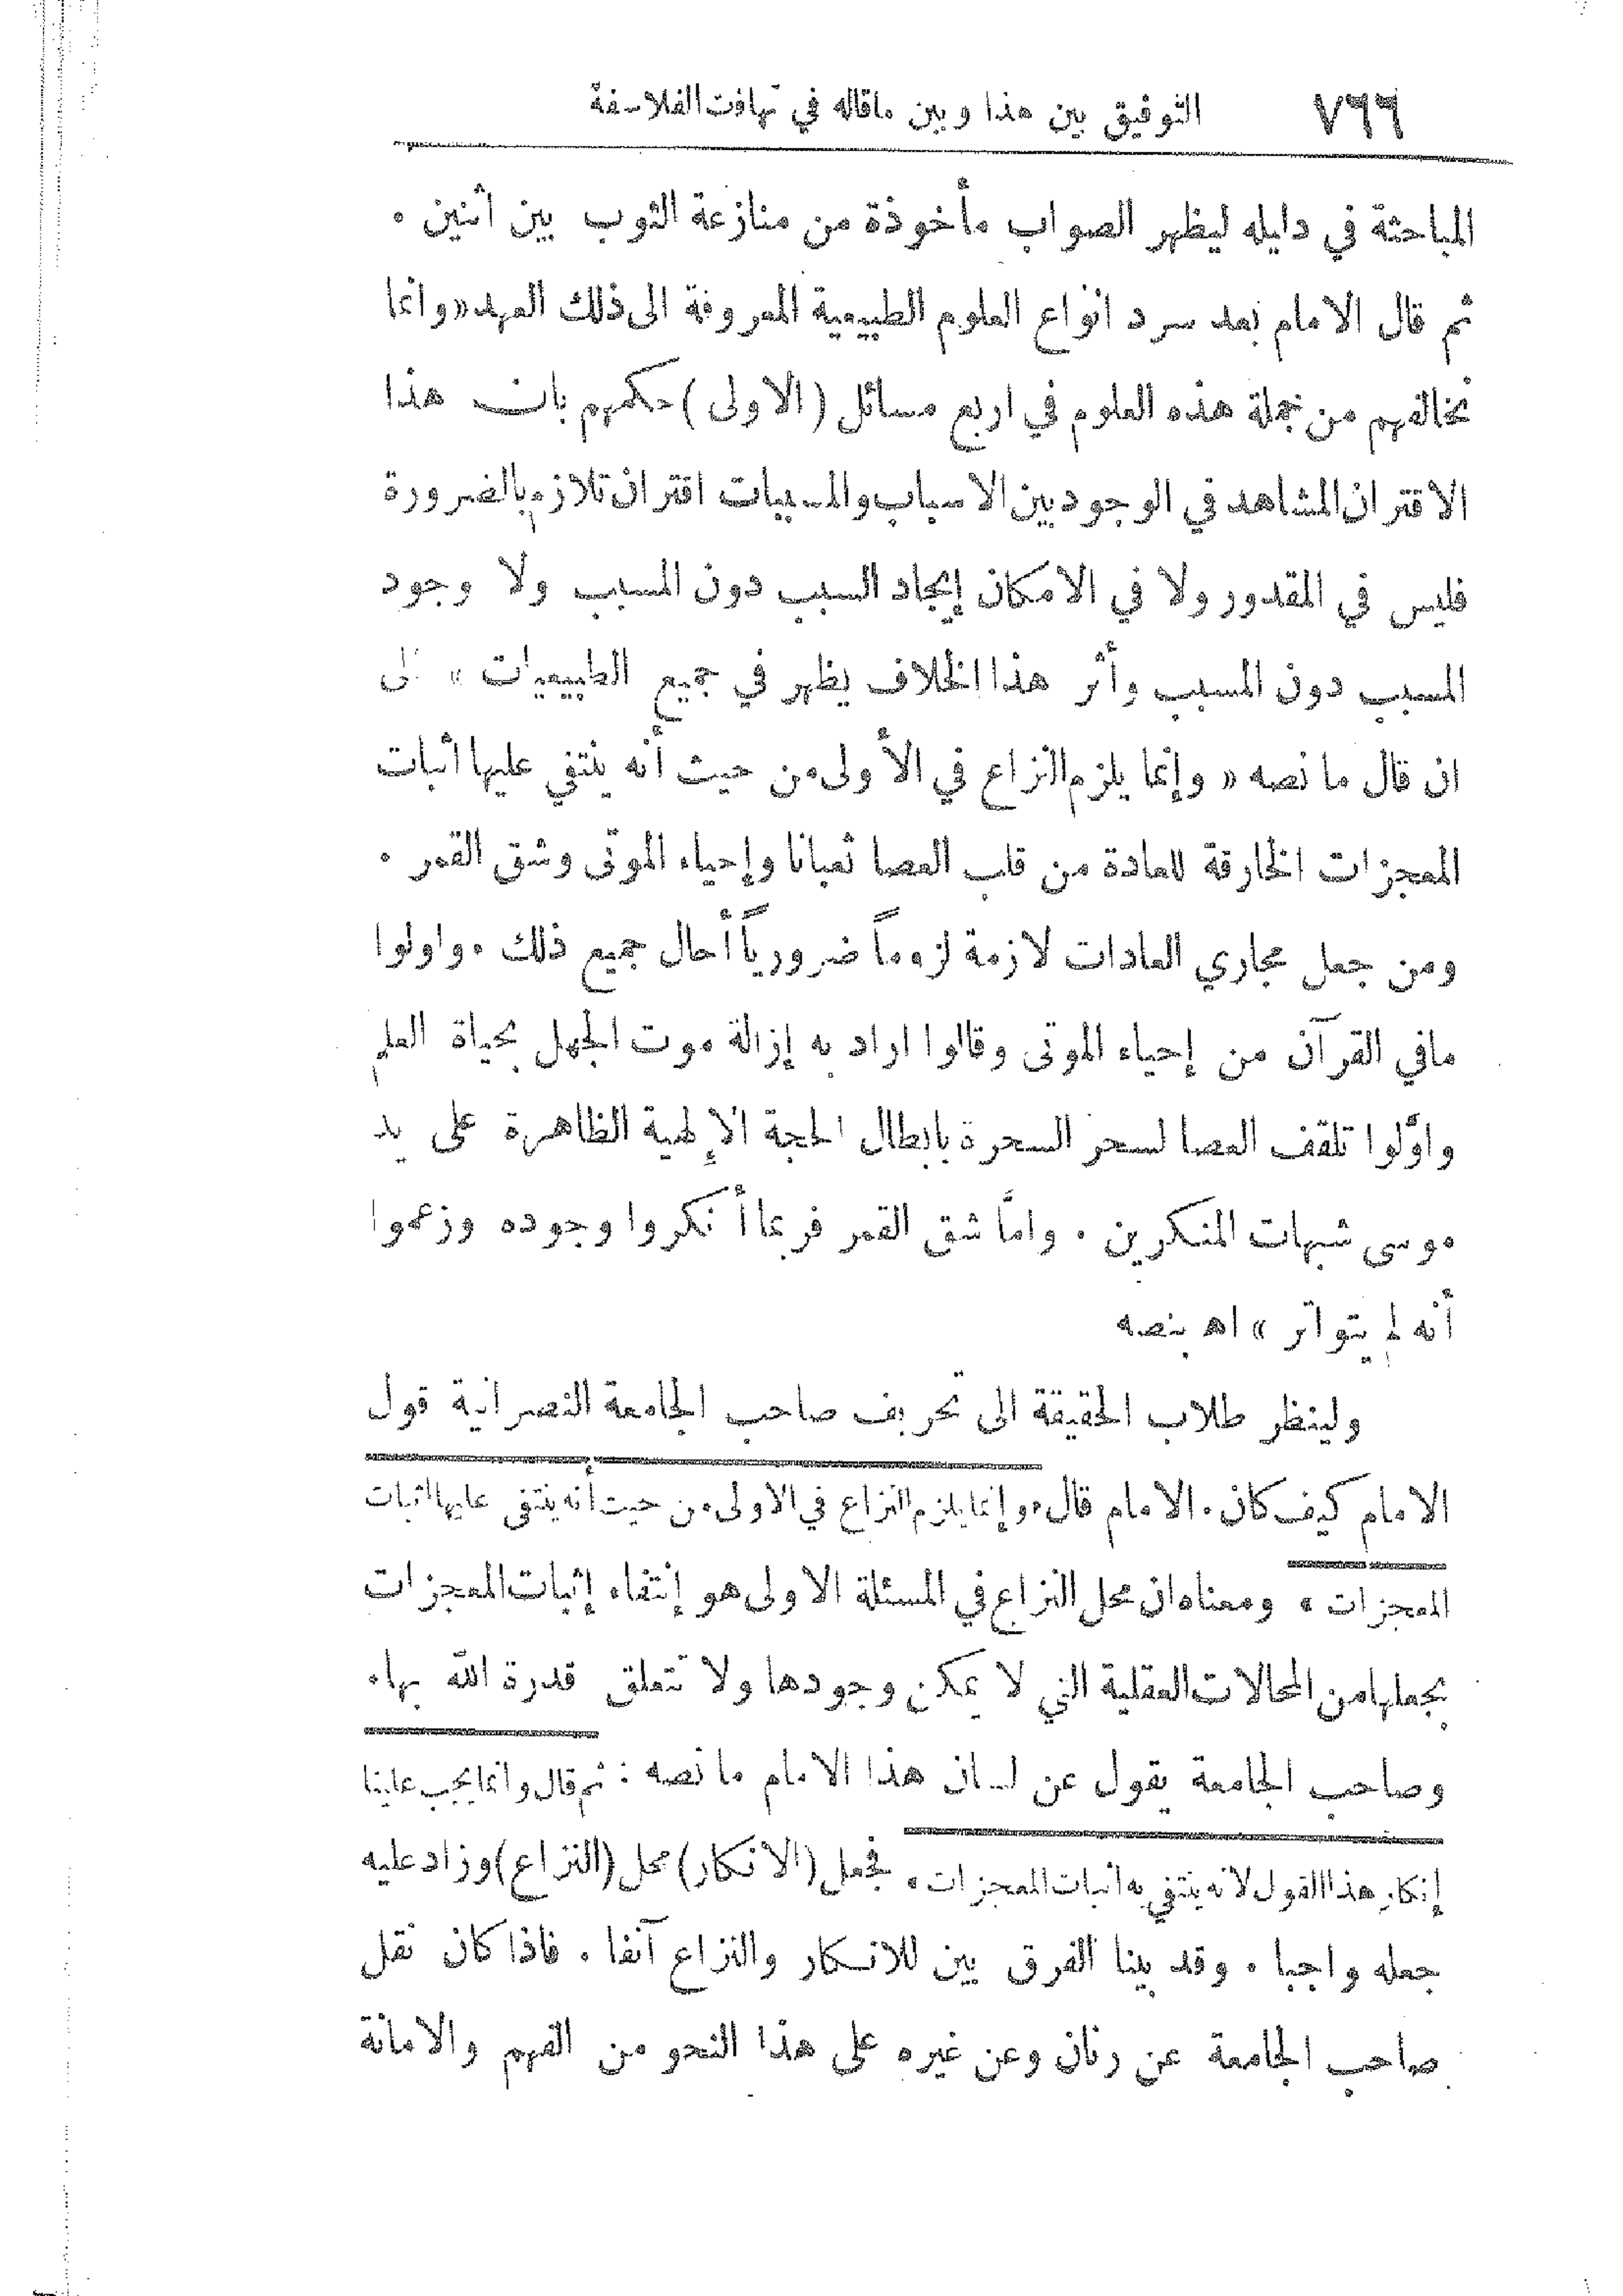 ٧٦٦ التوفيق بين هذا وبين ماقاله في تهافت الفلاسفة
المباحثة في دليله ليظهر الصواب مأخوذة من منازعة الثوب بين اثنين .
ثم قال الامام بعد سرد انواع العلوم الطبيعية المعروفة الى ذلك العهد « وانما
نخالفهم من جملة هذه العلوم في اربع مسائل ( الاولى ) حكمهم بان هذا
الاقتران المشاهد في الوجود بين الاسباب والمسببات اقتران تلازم بالضرورة
فليس في المقدور ولا في الامكان إيجاد السبب دون المسبب ولا وجود
المسبب دون المسبب وأثر هذا الخلاف يظهر في جميع الطبيعيات » الى
ان قال ما نصه « وإنما يلزم النزاع في الأولى من حيث أنه ينتفي عليها اثبات
المعجزات الخارقة للعادة من قلب العصا ثعبانا وإحياء الموتى وشق القمر .
ومن جعل مجاري العادات لازمة لزوماً ضرورياً أحال جميع ذلك . واولوا
مافي القرآن من إحياء الموتى وقالوا اراد به إزالة موت الجهل بحياة العلم
واوَّلوا تلقف العصا لسحر السحرة بابطال الحجة الإلهية الظاهرة على يد
موسى شبهات المنكرين . وامَّا شق القمر فربما أنكروا وجوده وزعموا
أنه لم يتواتر » اه بنصه
ولينظر طلاب الحقيقة الى تحريف صاحب الجامعة النصرانية قول
الامام كيف كان . الامام قال « وإنما يلزم النزاع في الاولى من حيث أنه ينتفي عليها اثبات
المعجزات » ومعناه ان محل النزاع في المسئلة الاولى هو إنتفاء إثبات المعجزات
بجعلها من المحالات العقلية التي لا يمكن وجودها ولا تتعلق قدرة الله بها .
وصاحب الجامعة يقول عن لسان هذا الامام ما نصه : ثم قال وانما يجب علينا
إنكار هذا القول لانه ينتفي به اثبات المعجزات . فجعل ( الانكار ) محل ( النزاع ) وزاد عليه
جعله واجبا . وقد بينا الفرق بين للانكار والنزاع آنفا . فاذا كان نقل
صاحب الجامعة عن رنان وعن غيره على هذا النحو من الفهم والامانة